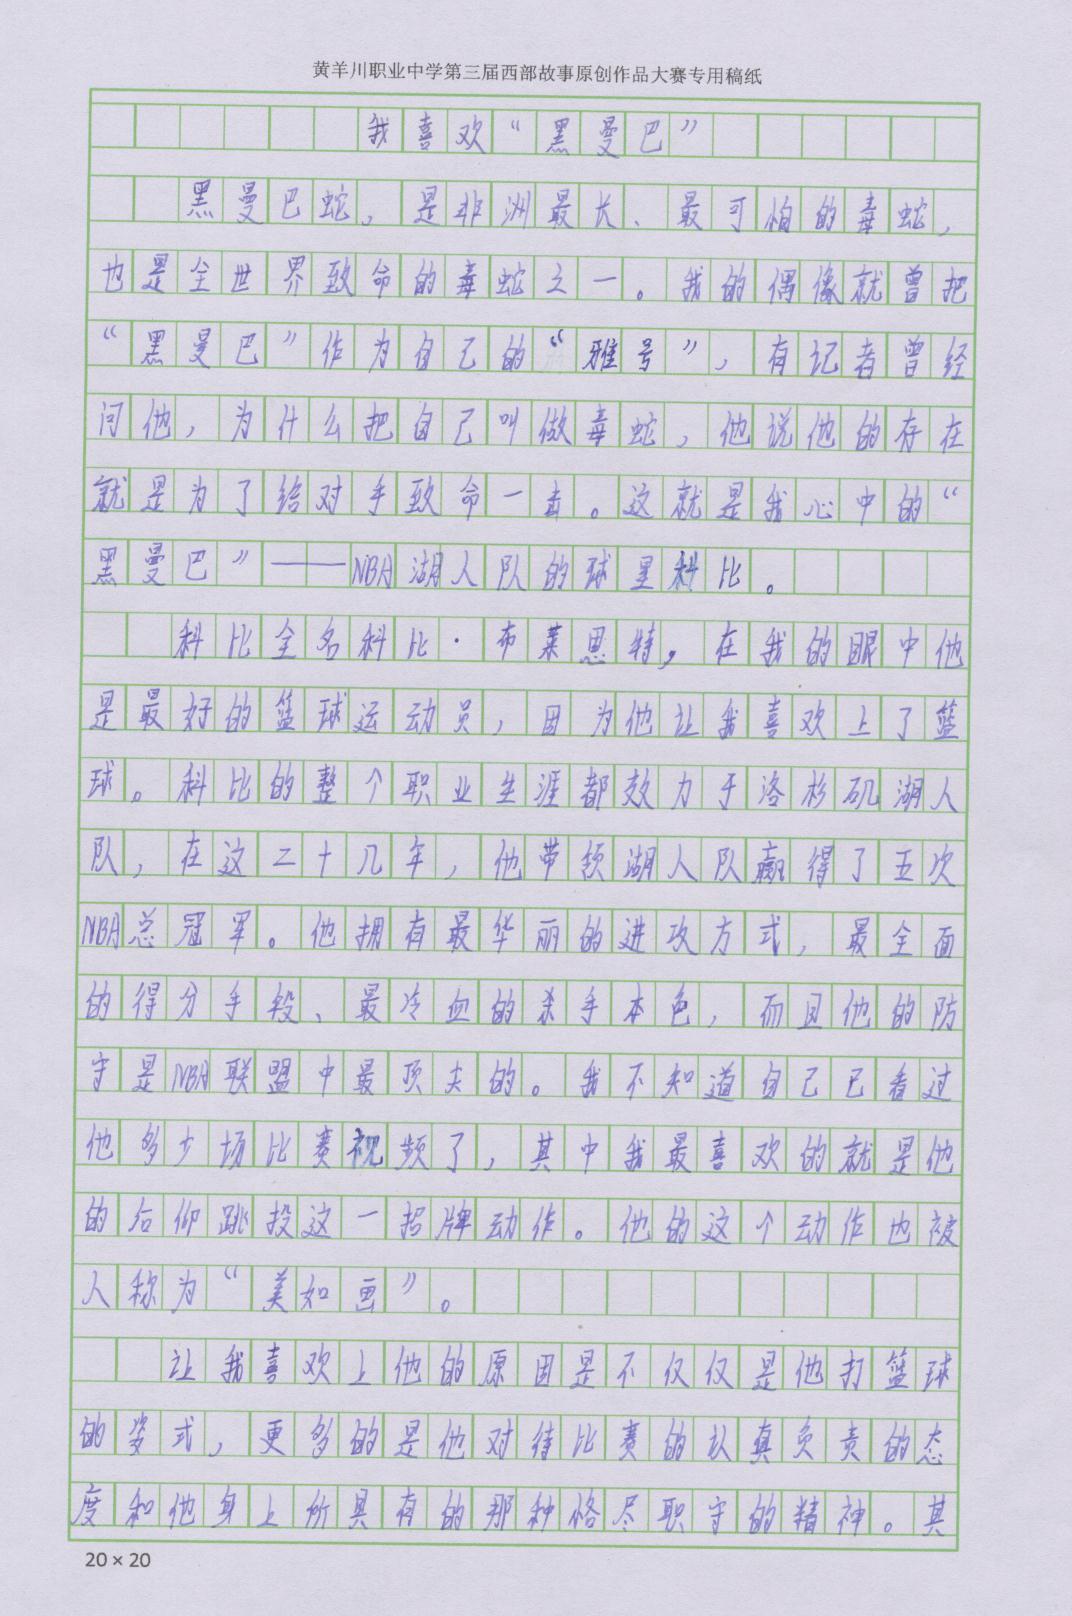 黄羊川职业中学第三届西部故事原创作品大赛专用稿纸
我喜欢“黑曼巴”
黑曼巴蛇，是非洲最长、最可怕的毒蛇，
也是全世界致命的毒蛇之一。我的偶像就曾把
“黑曼巴”作为自己的“雅号”，有记者曾经
问他，为什么把自己叫做毒蛇，他说他的存在
就是为了给对手致命一击。这就是我心中的“
黑曼巴”——NBA湖人队的球星科比。
科比全名科比·布莱恩特，在我的眼中他
是最好的篮球运动员，因为他让我喜欢上了篮
球。科比的整个职业生涯都效力于洛杉矶湖人
队，在这二十几年，他带领湖人队赢得了五次
NBA总冠军。他拥有最华丽的进攻方式，最全面
的得分手段、最冷血的杀手本色，而且他的防
守是NBA联盟中最顶尖的。我不知道自己已看过
他多少场比赛视频了，其中我最喜欢的就是他
的后仰跳投这一招牌动作。他的这个动作也被
人称为“美如画”。
让我喜欢上他的原因是不仅仅是他打篮球
的姿式，更多的是他对待比赛的认真负责的态
度和他身上所具有的那种恪尽职守的精神。其
20×20